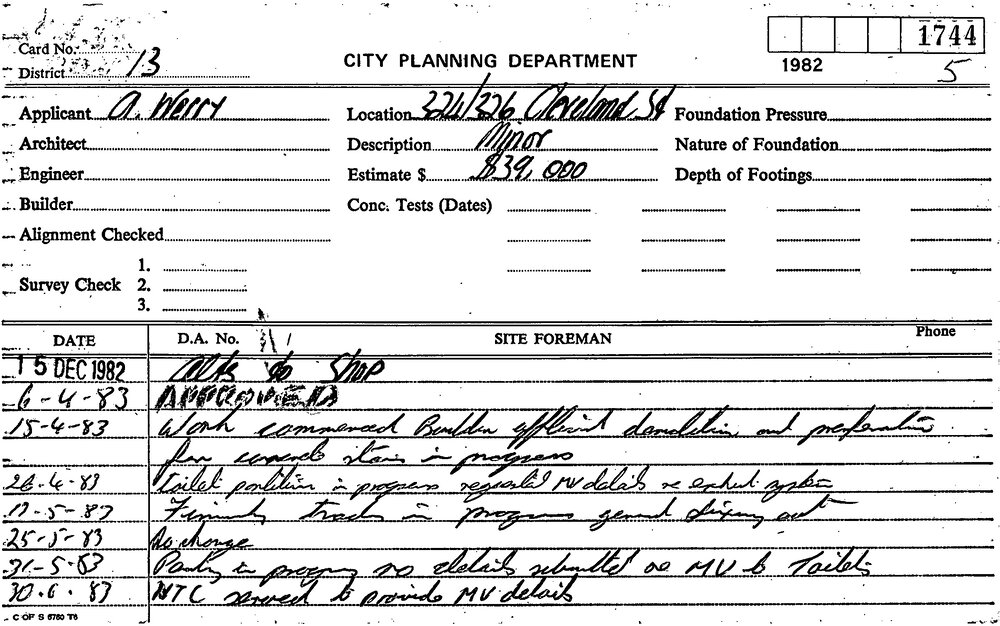 1744
Card No.
District 13
CITY PLANNING DEPARTMENT
1982
5
Applicant A. Werry
Location 324/326 Cleveland St
Foundation Pressure
Architect
Description Minor
Nature of Foundation
Engineer
Estimate $ $39,000
Depth of Footings
Builder
Conc. Tests (Dates)
Alignment Checked
Survey Check
1.
2.
3.
DATE
D.A. No.
SITE FOREMAN
Phone
15 DEC 1982 Alts to Shop
6-4-83 APPROVED
15-4-83 Work commenced Builder demolition and preparation
for concrete stairs in progress
26-4-83 toilet partition in progress requested MV details re exhaust system
17-5-83 Finishing trades in progress general fixing out
25-5-83 No change
31-5-83 Painting in progress no details submitted re MV to Toilets
30.6.83 NTC served to provide MV details
C OF S 6760 T6